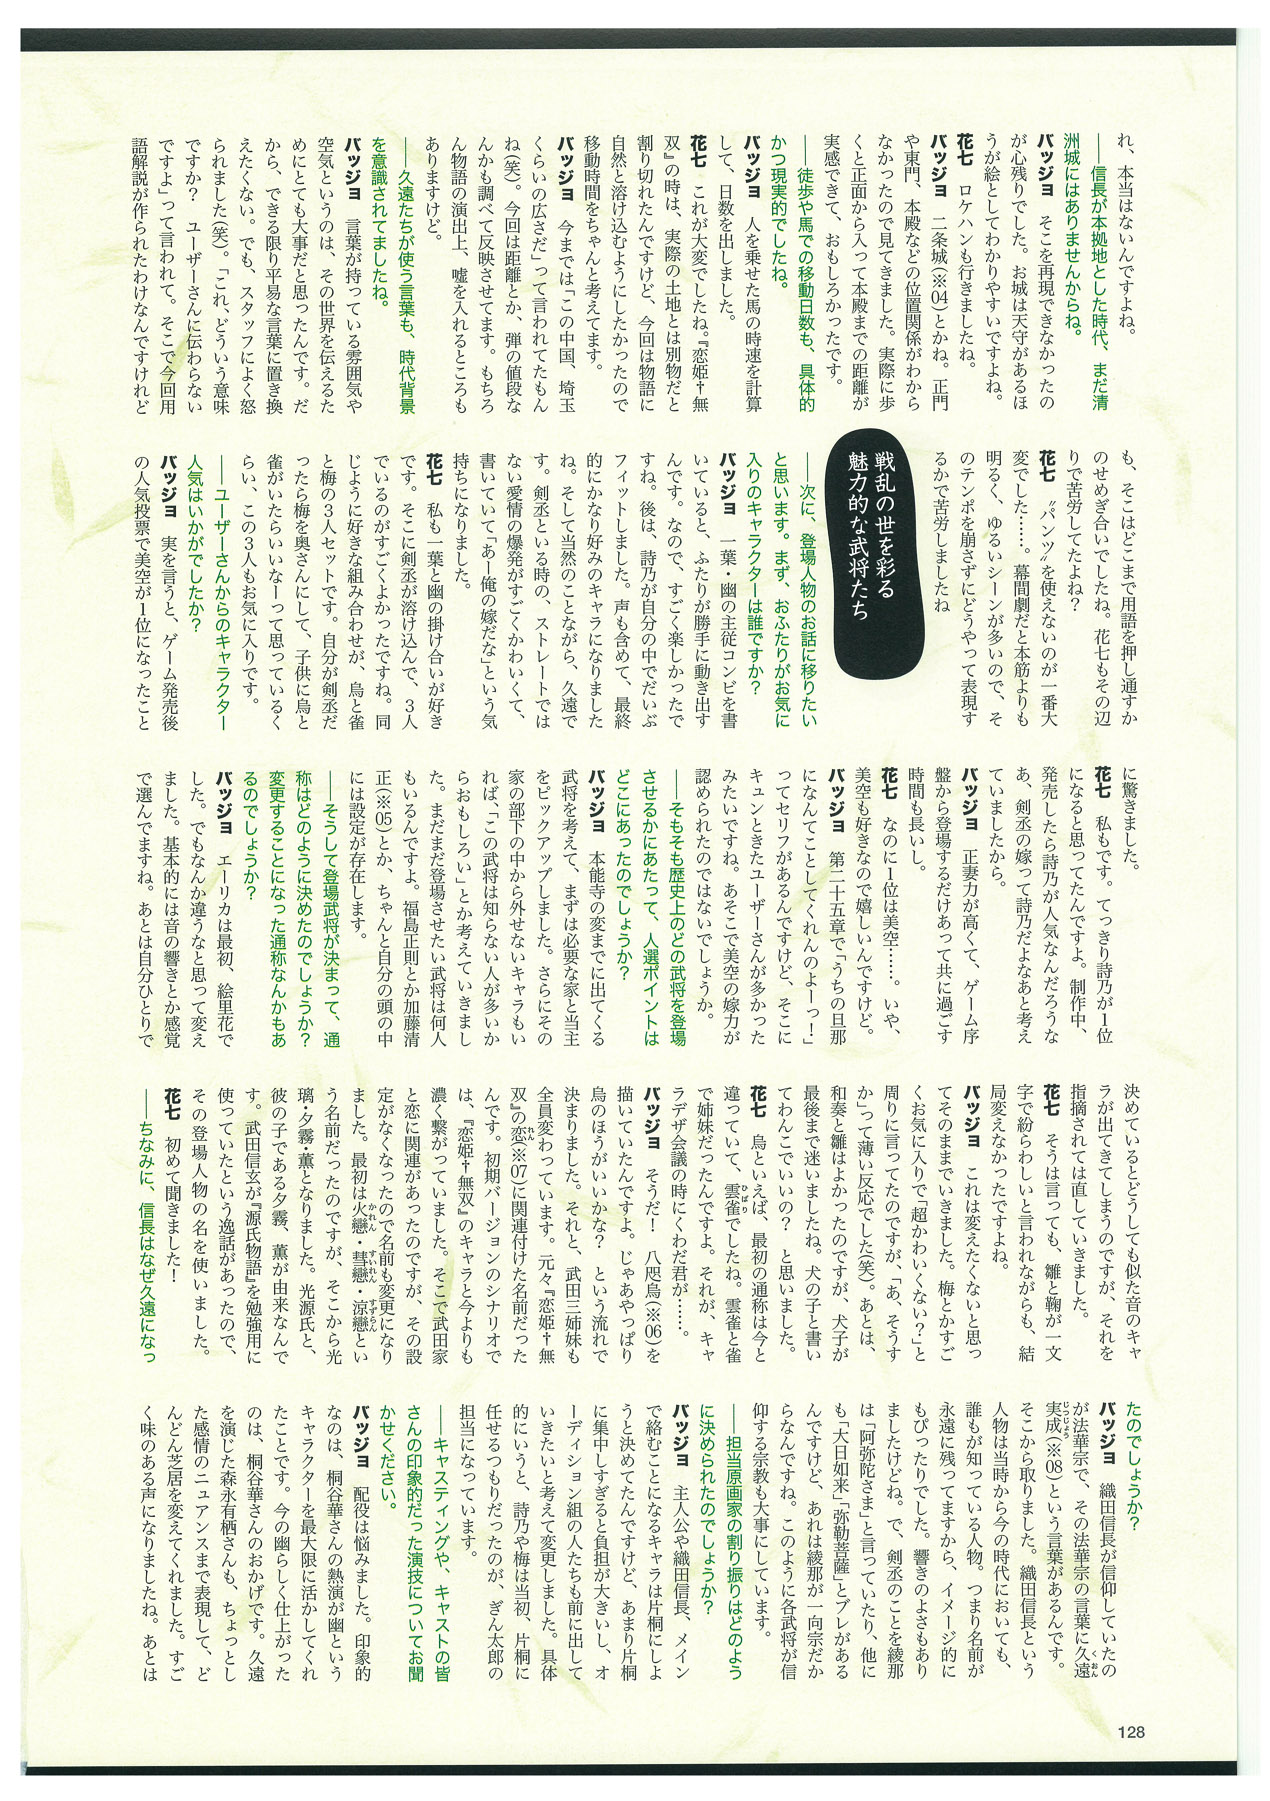 れ、本当はないんですよね。
――信長が本拠地とした時代、まだ清
洲城にはありませんからね。
バッジョ　そこを再現できなかったの
が心残りでした。お城は天守があるほ
うが絵としてわかりやすいですよね。
花七　ロケハンも行きましたね。
バッジョ　二条城(※04)とかね。正門
や東門、本殿などの位置関係がわから
なかったので見てきました。実際に歩
くと正面から入って本殿までの距離が
実感できて、おもしろかったです。
――徒歩や馬での移動日数も、具体的
かつ現実的でしたね。
バッジョ　人を乗せた馬の時速を計算
して、日数を出しました。
花七　これが大変でしたね。『恋姫†無
双』の時は、実際の土地とは別物だと
割り切れたんですけど、今回は物語に
自然と溶け込むようにしたかったので
移動時間をちゃんと考えてます。
バッジョ　今までは「この中国、埼玉
くらいの広さだ」って言われてたもん
ね(笑)。今回は距離とか、弾の値段な
んかも調べて反映させてます。もちろ
ん物語の演出上、嘘を入れるところも
ありますけど。
――久遠たちが使う言葉も、時代背景
を意識されてましたね。
バッジョ　言葉が持っている雰囲気や
空気というのは、その世界を伝えるた
めにとても大事だと思ったんです。だ
から、できる限り平易な言葉に置き換
えたくない。でも、スタッフによく怒
られました(笑)。「これ、どういう意味
ですか？　ユーザーさんに伝わらない
ですよ」って言われて。そこで今回用
語解説が作られたわけなんですけれど
も、そこはどこまで用語を押し通すか
のせめぎ合いでしたね。花七もその辺
りで苦労してたよね？
花七　〝パンツ〟を使えないのが一番大
変でした……。幕間劇だと本筋よりも
明るく、ゆるいシーンが多いので、そ
のテンポを崩さずにどうやって表現す
るかで苦労しましたね
戦乱の世を彩る
魅力的な武将たち
――次に、登場人物のお話に移りたい
と思います。まず、おふたりがお気に
入りのキャラクターは誰ですか？
バッジョ　一葉・幽の主従コンビを書
いていると、ふたりが勝手に動き出す
んです。なので、すごく楽しかったで
すね。後は、詩乃が自分の中でだいぶ
フィットしました。声も含めて、最終
的にかなり好みのキャラになりました
ね。そして当然のことながら、久遠で
す。剣丞といる時の、ストレートでは
ない愛情の爆発がすごくかわいくて、
書いていて「あー俺の嫁だな」という気
持ちになりました。
花七　私も一葉と幽の掛け合いが好き
です。そこに剣丞が溶け込んで、３人
でいるのがすごくよかったですね。同
じように好きな組み合わせが、烏と雀
と梅の３人セットです。自分が剣丞だ
ったら梅を奥さんにして、子供に烏と
雀がいたらいいなーって思っているく
らい、この３人もお気に入りです。
――ユーザーさんからのキャラクター
人気はいかがでしたか？
バッジョ　実を言うと、ゲーム発売後
の人気投票で美空が１位になったこと
に驚きました。
花七　私もです。てっきり詩乃が１位
になると思ってたんですよ。制作中、
発売したら詩乃が人気なんだろうな
あ、剣丞の嫁って詩乃だよなあと考え
ていましたから。
バッジョ　正妻力が高くて、ゲーム序
盤から登場するだけあって共に過ごす
時間も長いし。
花七　なのに１位は美空……。いや、
美空も好きなので嬉しいんですけど。
バッジョ　第二十五章で「うちの旦那
になんてことしてくれんのよーっ！」
ってセリフがあるんですけど、そこに
キュンときたユーザーさんが多かった
みたいですね。あそこで美空の嫁力が
認められたのではないでしょうか。
――そもそも歴史上のどの武将を登場
させるかにあたって、人選ポイントは
どこにあったのでしょうか？
バッジョ　本能寺の変までに出てくる
武将を考えて、まずは必要な家と当主
をピックアップしました。さらにその
家の部下の中から外せないキャラもい
れば、「この武将は知らない人が多いか
らおもしろい」とか考えていきまし
た。まだまだ登場させたい武将は何人
もいるんですよ。福島正則とか加藤清
正(※05)とか、ちゃんと自分の頭の中
には設定が存在します。
――そうして登場武将が決まって、通
称はどのように決めたのでしょうか？
変更することになった通称なんかもあ
るのでしょうか？
バッジョ　エーリカは最初、絵里花で
した。でもなんか違うなと思って変え
ました。基本的には音の響きとか感覚
で選んでますね。あとは自分ひとりで
決めているとどうしても似た音のキャ
ラが出てきてしまうのですが、それを
指摘されては直していきました。
花七　そうは言っても、雛と鞠が一文
字で紛らわしいと言われながらも、結
局変えなかったですよね。
バッジョ　これは変えたくないと思っ
てそのままでいきました。梅とかすご
くお気に入りで「超かわいくない？」と
周りに言ってたのですが、「あ、そうす
か」って薄い反応でした(笑)。あとは、
和奏と雛はよかったのですが、犬子が
最後まで迷いましたね。犬の子と書い
てわんこでいいの？　と思いました。
花七　烏といえば、最初の通称は今と
違っていて、雲雀(ひばり)でしたね。雲雀と雀
で姉妹だったんですよ。それが、キャ
ラデザ会議の時にくわだ君が……。
バッジョ　そうだ！　八咫烏(※06)を
描いていたんですよ。じゃあやっぱり
烏のほうがいいかな？　という流れで
決まりました。それと、武田三姉妹も
全員変わっています。元々『恋姫†無
双』の恋(れん)(※07)に関連付けた名前だった
んです。初期バージョンのシナリオで
は、『恋姫†無双』のキャラと今よりも
濃く繋がっていました。そこで武田家
と恋に関連があったのですが、その設
定がなくなったので名前も変更になり
ました。最初は火戀(かれん)・彗戀(すいれん)・涼戀(すずらん)とい
う名前だったのですが、そこから光
璃・夕霧・薫となりました。光源氏と、
彼の子である夕霧、薫が由来なんで
す。武田信玄が『源氏物語』を勉強用に
使っていたという逸話があったので、
その登場人物の名を使いました。
花七　初めて聞きました！
――ちなみに、信長はなぜ久遠になっ
たのでしょうか？
バッジョ　織田信長が信仰していたの
が法華宗で、その法華宗の言葉に久遠(くおん)
実成(じつじょう)(※08)という言葉があるんです。
そこから取りました。織田信長という
人物は当時から今の時代においても、
誰もが知っている人物。つまり名前が
永遠に残ってますから、イメージ的に
もぴったりでした。響きのよさもあり
ましたけどね。で、剣丞のことを綾那
は「阿弥陀さま」と言っていたり、他に
も「大日如来」「弥勒菩薩」とブレがある
んですけど、あれは綾那が一向宗だか
らなんですね。このように各武将が信
仰する宗教も大事にしています。
――担当原画家の割り振りはどのよう
に決められたのでしょうか？
バッジョ　主人公や織田信長、メイン
で絡むことになるキャラは片桐にしよ
うと決めてたんですけど、あまり片桐
に集中しすぎると負担が大きいし、オ
ーディション組の人たちも前に出して
いきたいと考えて変更しました。具体
的にいうと、詩乃や梅は当初、片桐に
任せるつもりだったのが、ぎん太郎の
担当になっています。
――キャスティングや、キャストの皆
さんの印象的だった演技についてお聞
かせください。
バッジョ　配役は悩みました。印象的
なのは、桐谷華さんの熱演が幽という
キャラクターを最大限に活かしてくれ
たことです。今の幽らしく仕上がった
のは、桐谷華さんのおかげです。久遠
を演じた森永有栖さんも、ちょっとし
た感情のニュアンスまで表現して、ど
んどん芝居を変えてくれました。すご
く味のある声になりましたね。あとは
128